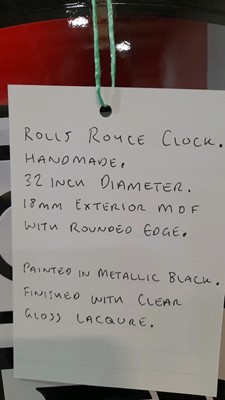 ROLLS ROYCE CLOCK.
HANDMADE.
32 INCH DIAMETER.
18MM EXTERIOR MDF
WITH ROUNDED EDGE.
PAINTED IN METALLIC BLACK.
FINISHED WITH CLEAR
GLOSS LACQURE.